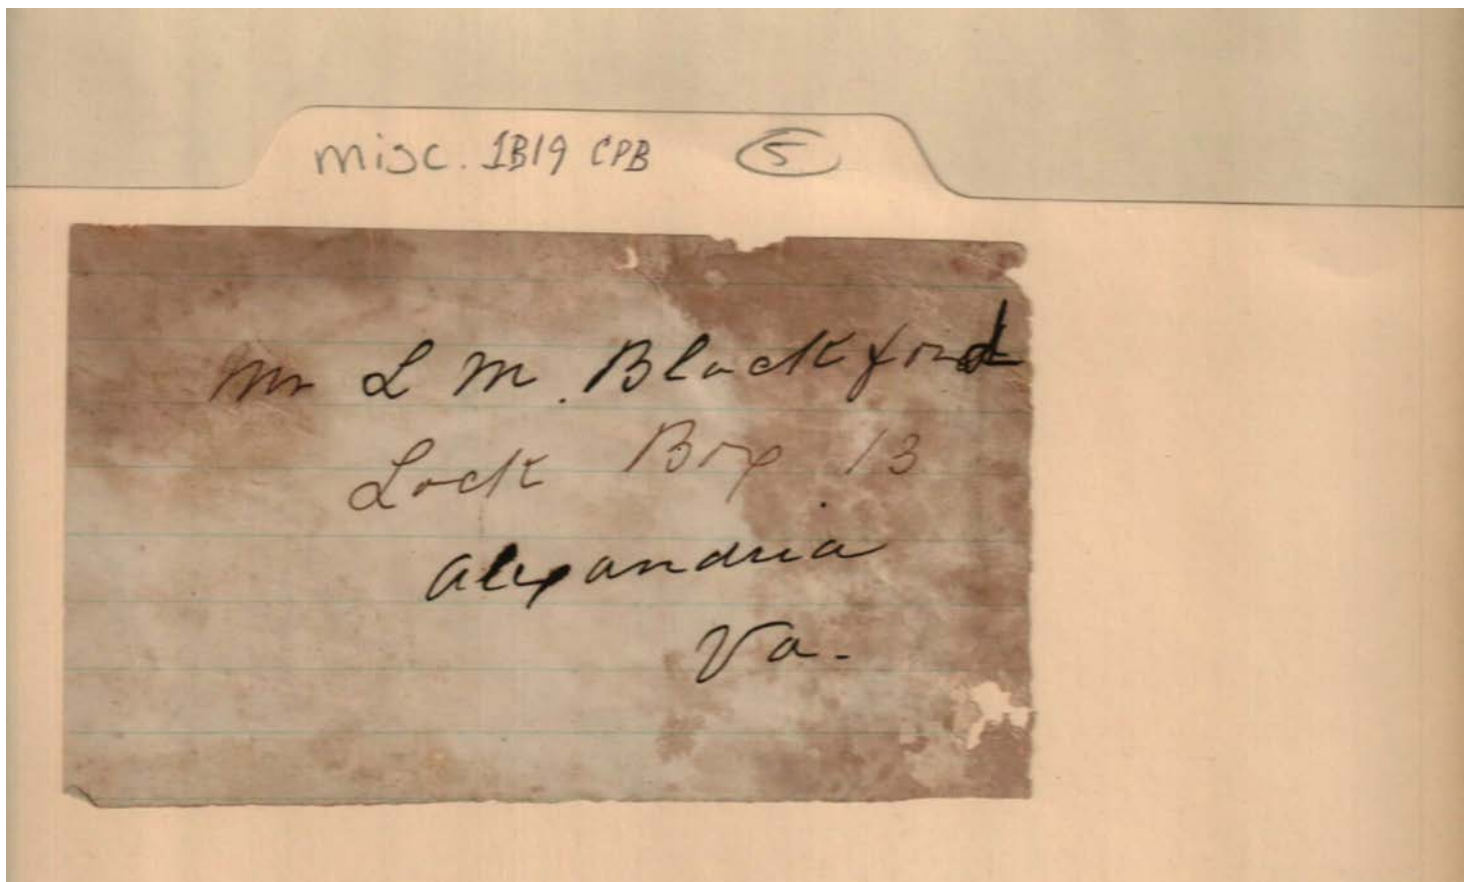 misc. 1B19 CPB 5
Mr L M. Blackford
Lock Box 13
Alexandria
Va.